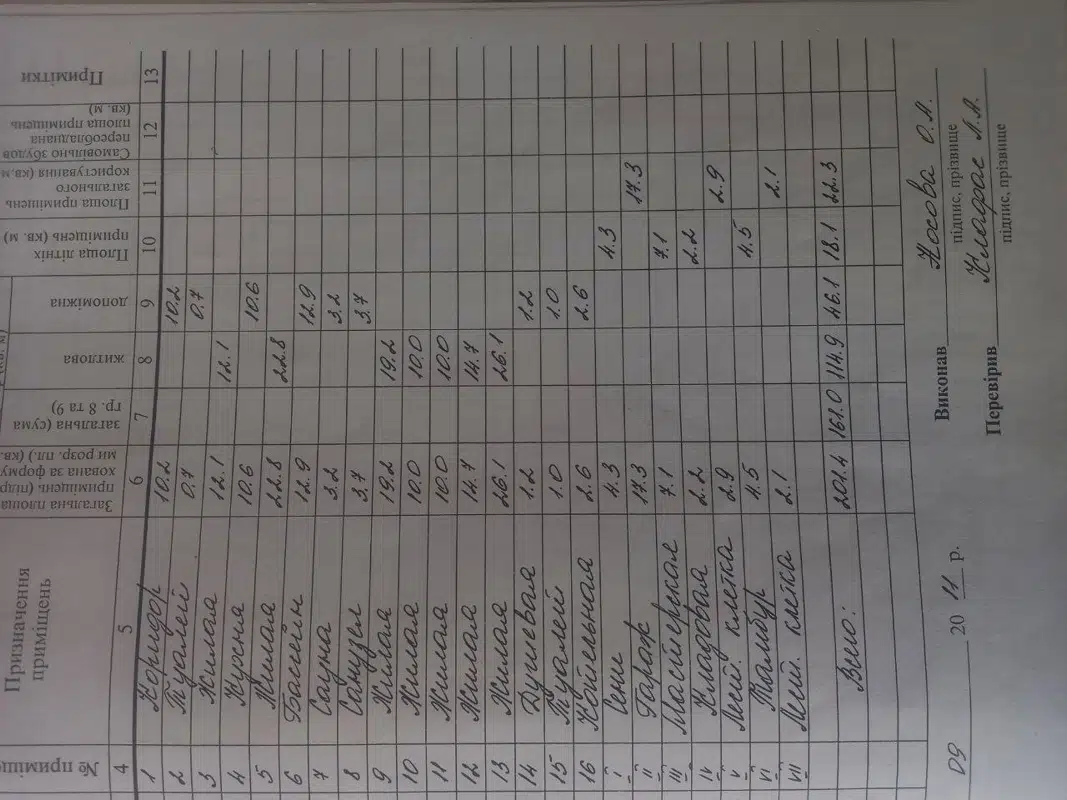 № приміще
Призначення
приміщень
Загальна площа
приміщень (підр
хована за форму
ми розр. пл.) (кв.
загальна (сума
гр. 8 та 9)
житлова
допоміжна
Площа літніх
приміщень (кв. м)
Площа приміщень
загального
користування (кв.м
Самовільно збудов
переобладнана
площа приміщень
(кв. м)
Примітки
4 5 6 7 8 9 10 11 12 13
1 Коридор 10.2 10.2
2 Туалет 0.7 0.7
3 Жилая 12.1 12.1
4 Кухня 10.6 10.6
5 Жилая 22.8 22.8
6 Бассейн 12.9 12.9
7 Сауна 3.2 3.2
8 Санузел 3.7 3.7
9 Жилая 19.2 19.2
10 Жилая 10.0 10.0
11 Жилая 10.0 10.0
12 Жилая 14.7 14.7
13 Жилая 26.1 26.1
14 Душевая 1.2 1.2
15 Туалет 1.0 1.0
16 Котельная 2.6 2.6
I Сени 4.3 4.3
II Гараж 17.3 17.3
III Мастерская 7.1 7.1
IV Кладовая 2.2 2.2
V Лест. клетка 2.9 2.9
VI Тамбур 4.5 4.5
VII Лест. клетка 2.1 2.1
Всего: 201.4 161.0 114.9 46.1 18.1 22.3
Виконав Носова О.А.
підпис, прізвище
09 20 11 р. Перевірив Л.А.
підпис, прізвище